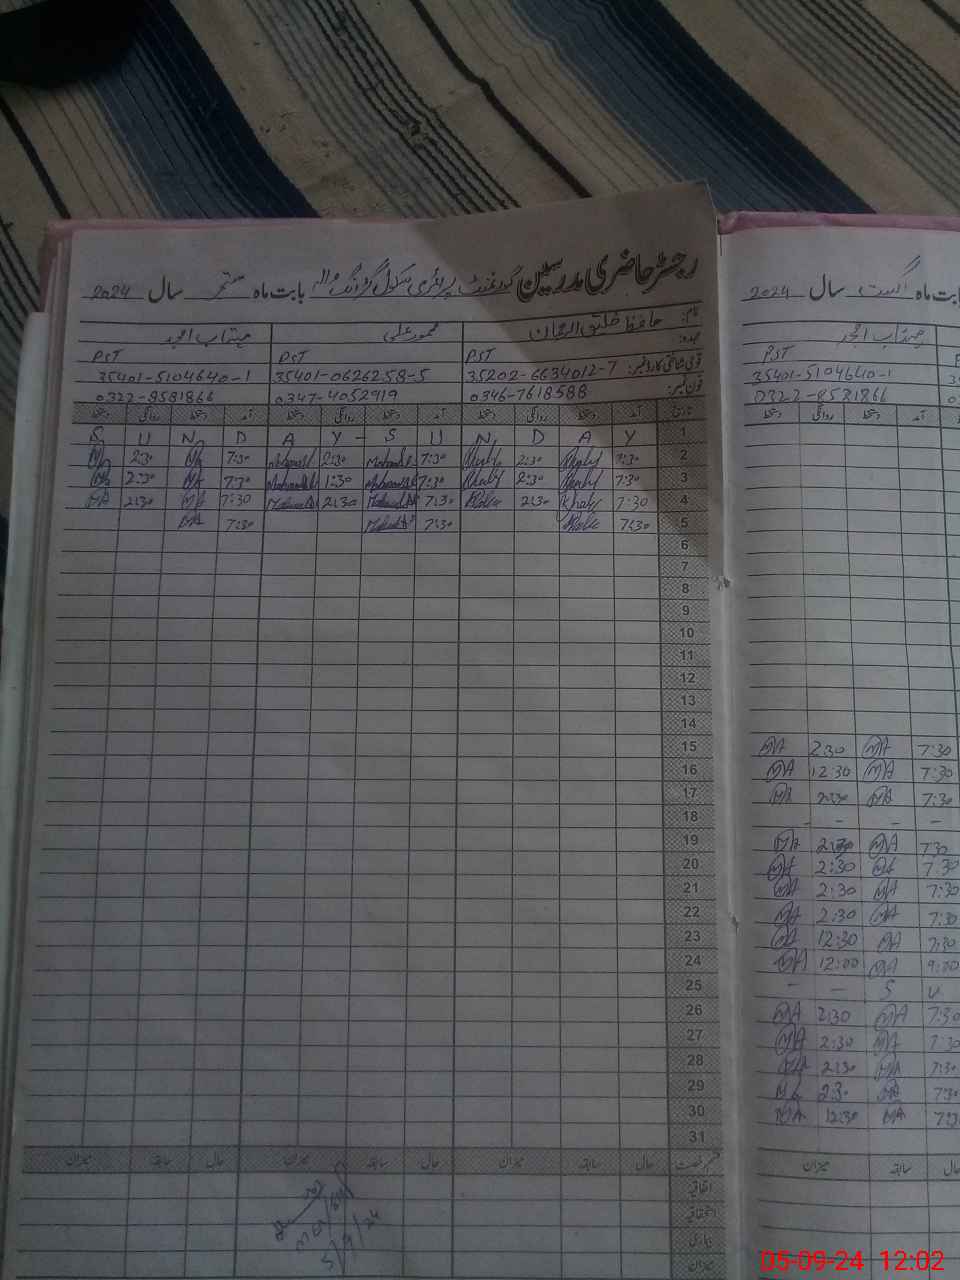 رجسٹر حاضری مدرسین گورنمنٹ پرائمری سکول بابت ماہ ستمبر سال 2024
نام: حافظ خلیق الرحمان محمود علی مہتاب امجد
عہدہ: PST PST PST
قومی شناختی کارڈ نمبر: 35202-6634012-7 35401-0626258-5 35401-5104640-1
فون نمبر: 0346-7618588 0347-4052919 0322-8581866
تاریخ آمد دستخط روانگی دستخط آمد دستخط روانگی دستخط آمد دستخط روانگی دستخط
S U N D A Y - S U N D A Y 1
2:30 7:30 2:30 7:30 2:30 7:30 2
2:30 MA 7:30 1:30 7:30 2:30 7:30 3
MA 2:30 MA 7:30 2:30 7:30 2:30 7:30 4
MA 7:30 7:30 7:30 5
6
7
8
9
10
11
12
13
14
15
16
17
18
19
20
21
22
23
24
25
26
27
28
29
30
31
قسم رخصت حال سابقہ میزان حال سابقہ میزان حال سابقہ میزان
اتفاقیہ
استحقاقیہ
بیماری
میزان
5/9/24
بابت ماہ اگست سال 2024
مہتاب امجد
PST
35401-5104640-1
0322-8581866
آمد دستخط روانگی دستخط
MA 2:30 MA 7:30
MA 12:30 MA 7:30
MA 2:30 MA 7:30
- - - -
MA 2:30 MA 7:30
MA 2:30 MA 7:30
MA 2:30 MA 7:30
MA 2:30 MA 7:30
MA 12:30 MA 7:30
MA 12:00 MA 9:00
- - S U
MA 2:30 MA 7:30
MA 2:30 MA 7:30
MA 2:30 MA 7:30
MA 2:30 MA 7:30
MA 12:30 MA 7:3
حال سابقہ میزان
05-09-24 12:02